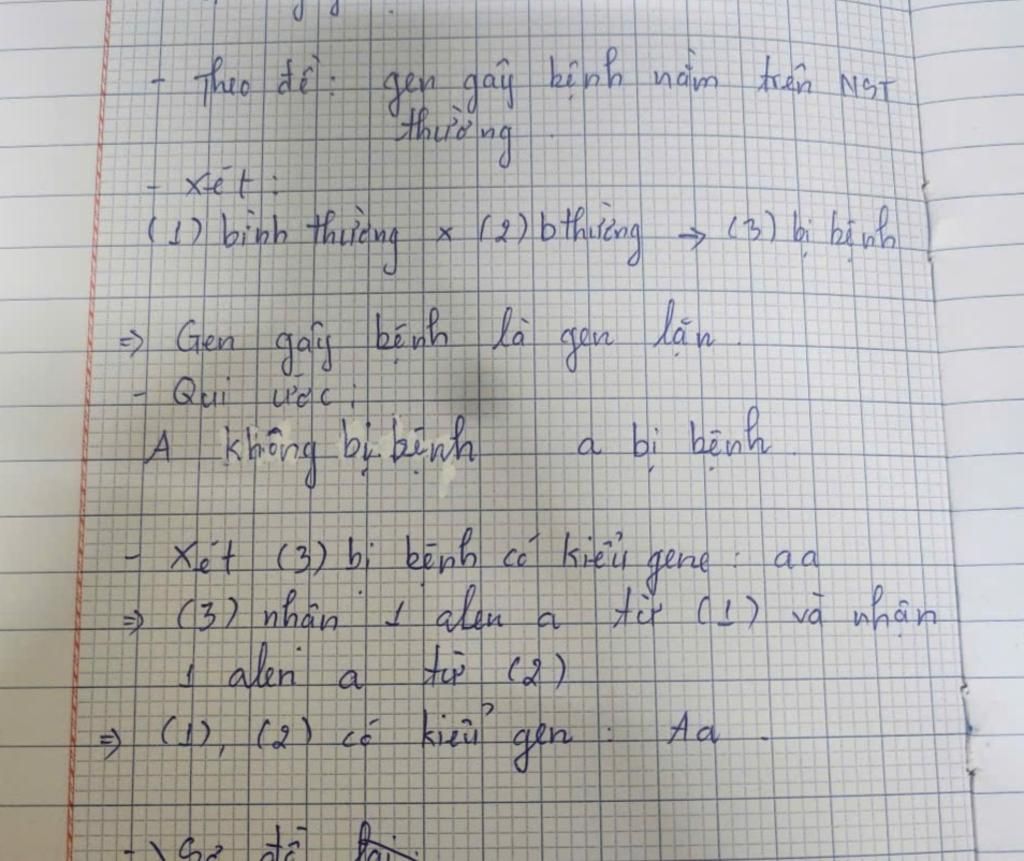 - Theo đề: gen gây bệnh nằm trên NST
thường.
- Xét:
(1) bình thường x (2) bthường → (3) bị bệnh
⇒ Gen gây bệnh là gen lặn.
- Qui ước:
A không bị bệnh a bị bệnh.
- Xét (3) bị bệnh có kiểu gene: aa
⇒ (3) nhận 1 alen a từ (1) và nhận
1 alen a từ (2)
⇒ (1), (2) có kiểu gen: Aa.
- Sơ đồ lai